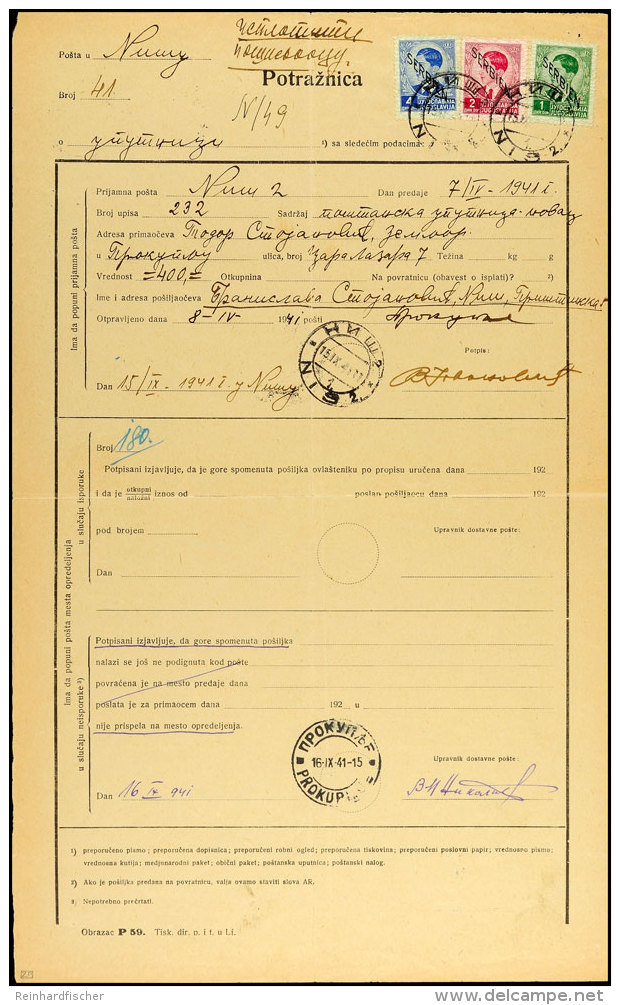 Исплатити
пошиљаоцу
Pošta u Нишу
Potražnica
Broj 41
N/49
4 SERBIEN ЈУГОСЛАВИЈА JUGOSLAVIJA
2 SERBIEN ЈУГОСЛАВИЈА JUGOSLAVIJA
1 SERBIEN ЈУГОСЛАВИЈА JUGOSLAVIJA
НИШ 2 NIŠ 2
НИШ 2 NIŠ 2
o упутници ¹) sa sledećim podacima:
Ima da popuni prijamna pošta
Prijamna pošta Ниш 2 Dan predaje 7/IV - 1941 г.
Broj upisa 232 Sadržaj поштанска упутница - новац
Adresa primaočeva Тодор Стојановић,
u Прокупљу ulica, broj Цара Лазара 7 Težina kg g
Vrednost =400,= Otkupnina Na povratnicu (obavest o isplati)? ²)
Ime i adresa pošiljaočeva Бранислава Стојановић, Ниш, Приштинска
Otpravljeno dana 8-IV 1941 pošti Прокупље
НИШ 2 15.IX.41 NIŠ 2
Potpis:
Dan 15/IX - 1941 г. у Нишу
Ima da popuni pošta mesta opredeljenja
u slučaju isporuke
Broj 180.
Potpisani izjavljuje, da je gore spomenuta pošiljka ovlašteniku po propisu uručena dana 192
i da je otkupni naložni iznos od poslan pošiljaocu dana 192
pod brojem Upravnik dostavne pošte:
Dan
u slučaju neisporuke ³)
Potpisani izjavljuje, da gore spomenuta pošiljka
nalazi se još ne podignuta kod pošte
povraćena je na mesto predaje dana
poslata je za primaocem dana 192 u
nije prispela na mesto opredeljenja.
ПРОКУПЉЕ 16·IX·41-15 PROKUPLJE
Upravnik dostavne pošte:
Dan 16 IX 941
¹) preporučeno pismo; preporučena dopisnica; preporučeni robni ogled; preporučena tiskovina; preporučeni poslovni papir; vrednosno pismo;
vrednosna kutija; medjunarodni paket; obični paket; poštanska uputnica; poštanski nalog.
²) Ako je pošiljka predana na povratnicu, valja ovamo staviti slova AR.
³) Nepotrebno prečrtati.
Obrazac P 59. Tisk. dir. p. i t. u Lj.
Reinhardfischer
delcampe.net